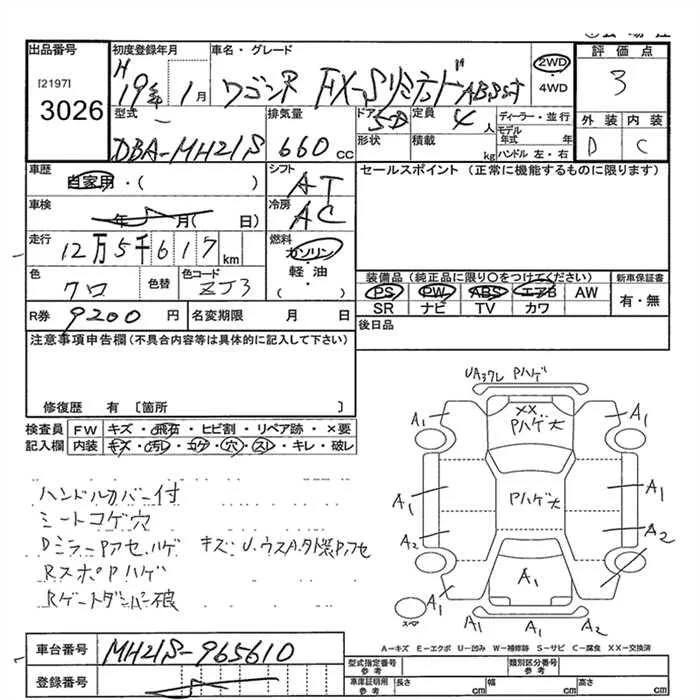 出品番号
[2197]
3026
初度登録年月
H
19年 1月
車名・グレード
ワゴンR FX-Sリミテッド ABS付
2WD
・4WD
評価点
3
外装 内装
D C
型式
DBA-MH21S
排気量
660 CC
ドア 5D
形状
定員 4 人
積載 kg
ディーラー・並行
モデル年式 年
ハンドル 左・右
車歴
自家用・( )
シフト
AT
セールスポイント (正常に機能するものに限ります)
車検
年 月( 日)
冷房
AC
走行
12万5千617 km
燃料
ガソリン
軽・油
( )
色
クロ
色替
色コード
ZJ3
装備品 (純正品に限り○をつけてください)
PS PW ABS エアB AW
SR ナビ TV カワ
新車保証書
有・無
R券 9200 円
名変期限 月 日
後日品
注意事項申告欄 (不具合内容等は具体的に記入して下さい)
修復歴 有 〔箇所 〕
検査員記入欄
FW キズ・飛石・ヒビ割・リペア跡・×要
内装 キズ・汚レ・コゲ・穴・スレ・キレ・破レ
ハンドルカバー付
シートコゲ穴
Dミラー Pアセ、ハゲ キズ・U、ウスA、外装Pアセ
RスポPハゲ
Rゲートダンパー不良
UA37レ Pハゲ
XX
Pハゲ大
A1 A1
Pハゲ大
A1 A1
A2 A2
A1 A1 A2
スペア
A1 A1 A2
A−キズ E−エクボ U−凹み W−補修跡 S−サビ C−腐食 XX−交換済
車台番号 MH21S-965610
登録番号
型式指定番号
参考
類別区分番号
参考
車庫証明用
参考
長さ cm
幅 cm
高さ cm